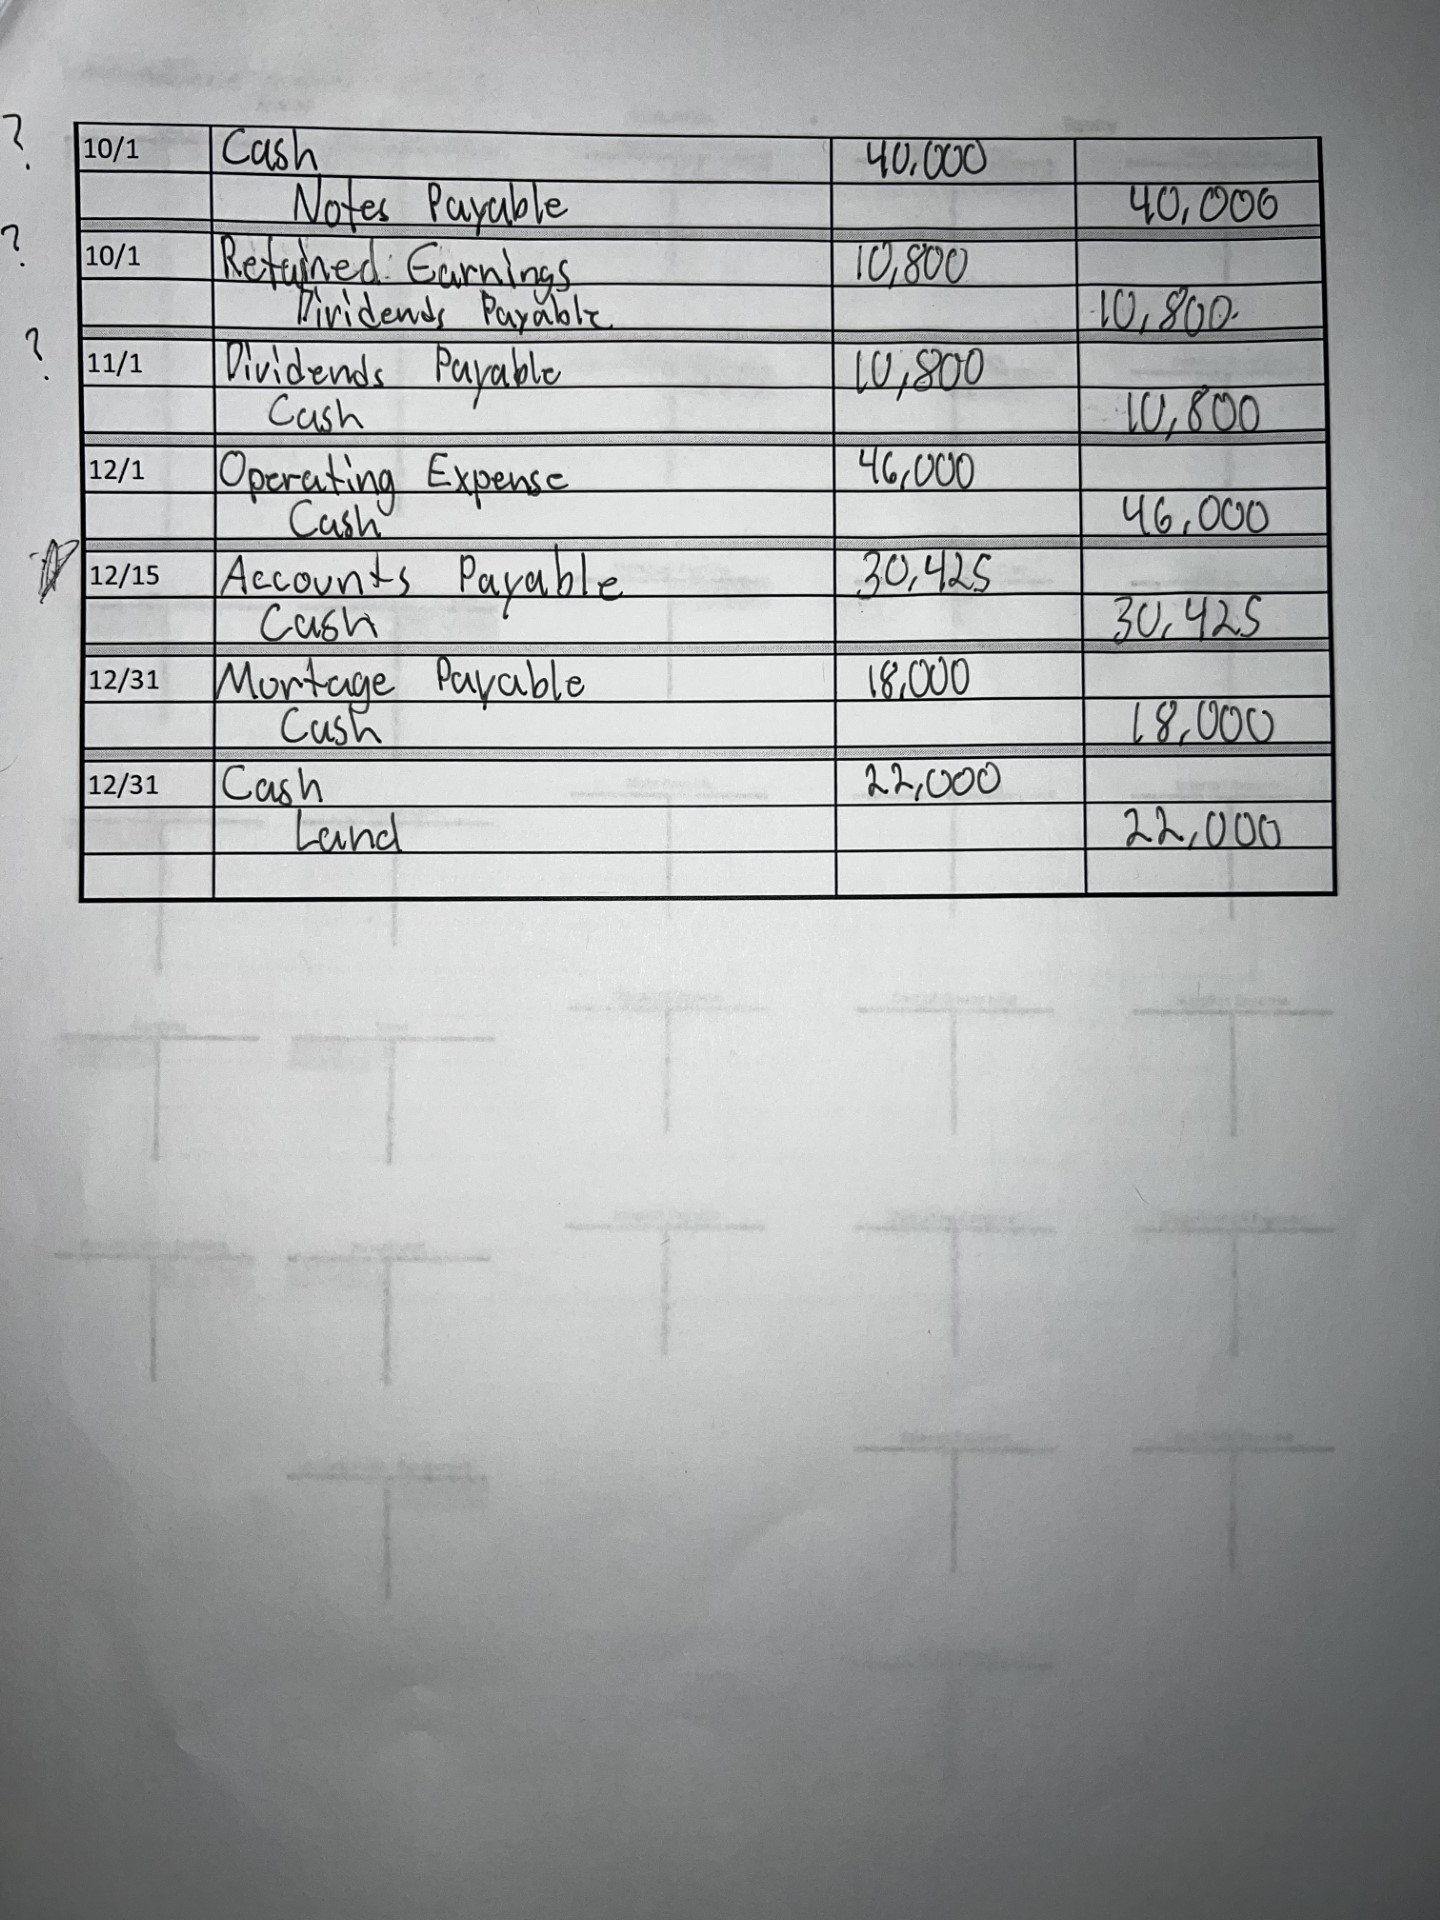 ? 10/1 Cash 40,000
Notes Payable 40,000
? 10/1 Retained Earnings 10,800
Dividends Payable 10,800
? 11/1 Dividends Payable 10,800
Cash 10,800
12/1 Operating Expense 46,000
Cash 46,000
12/15 Accounts Payable 30,425
Cash 30,425
12/31 Mortage Payable 18,000
Cash 18,000
12/31 Cash 22,000
Land 22,000